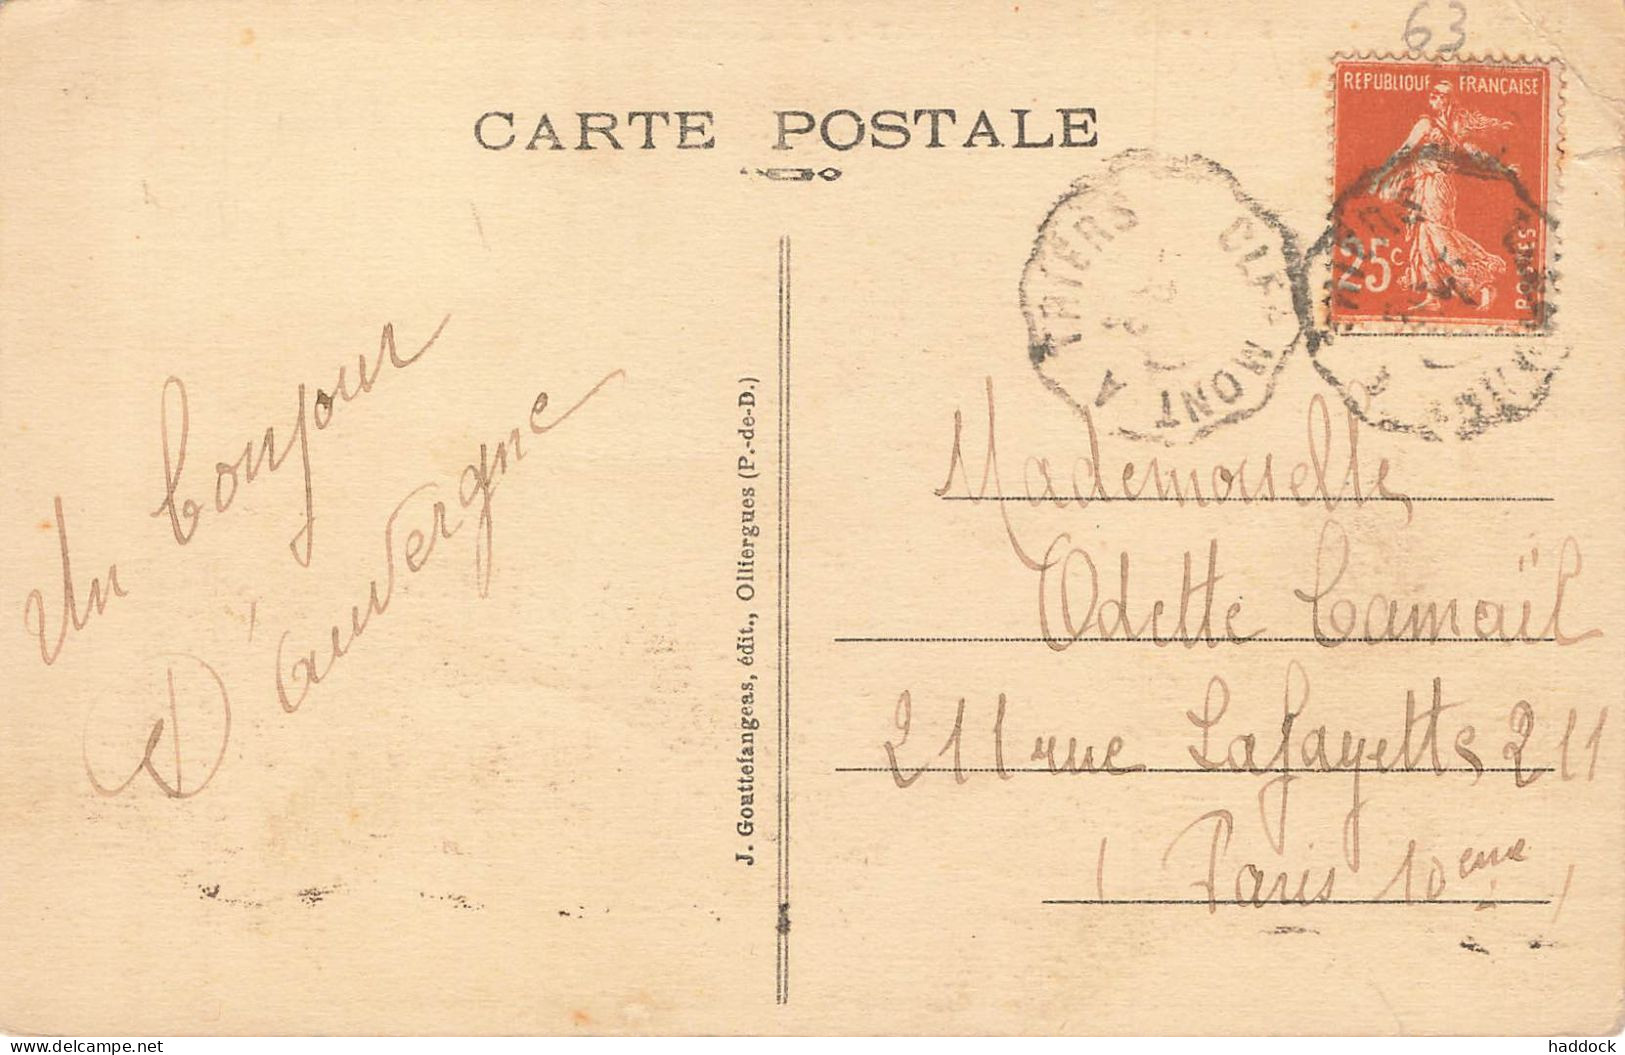 63
REPUBLIQUE FRANÇAISE
25c
POSTES
CARTE POSTALE
CLERMONT A
Un bonjour
D'auvergne
J. Gouttefangeas, édit., Olliergues (P.-de-D.)
Mademoiselle
Odette Camaïl
211 rue Lafayette 211
( Paris 10eme )
www.delcampe.net
haddock